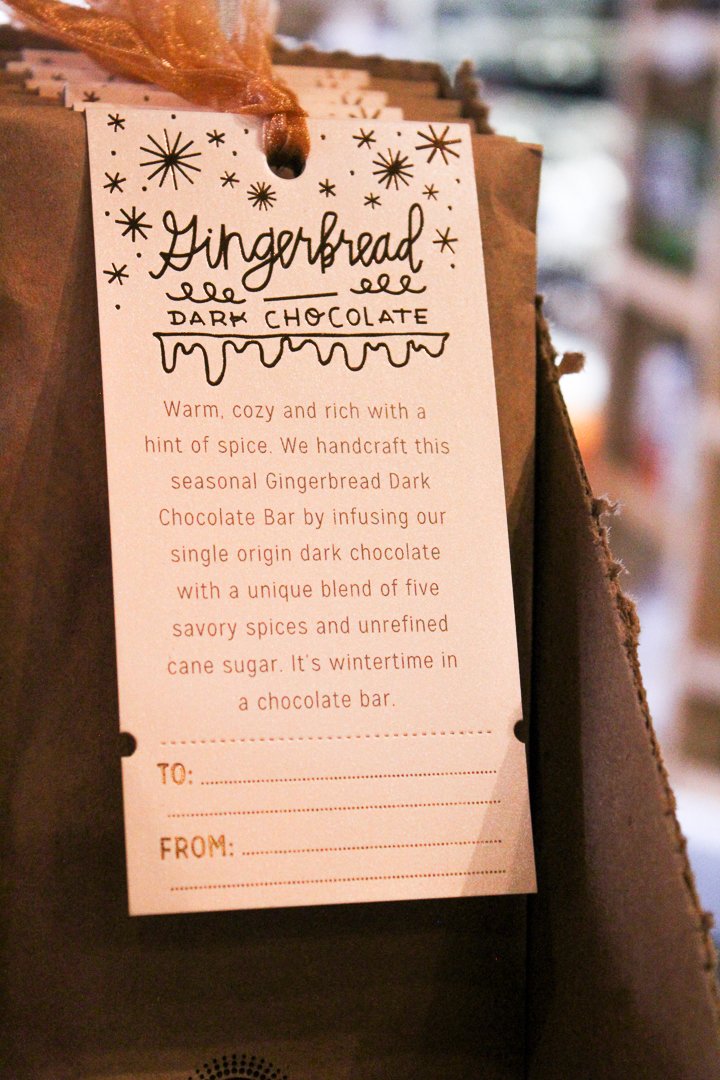 Gingerbread
DARK CHOCOLATE
Warm, cozy and rich with a
hint of spice. We handcraft this
seasonal Gingerbread Dark
Chocolate Bar by infusing our
single origin dark chocolate
with a unique blend of five
savory spices and unrefined
cane sugar. It's wintertime in
a chocolate bar.
TO:
FROM: